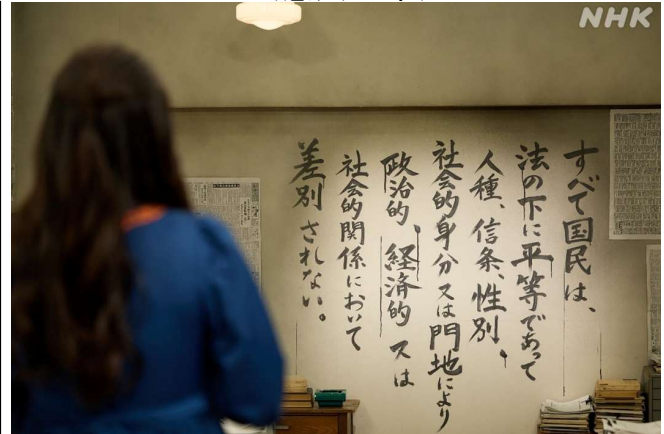 NHK
すべて国民は、
法の下に平等であって
人種、信条、性別、
社会的身分又は門地により
政治的、経済的又は
社会的関係において
差別されない。